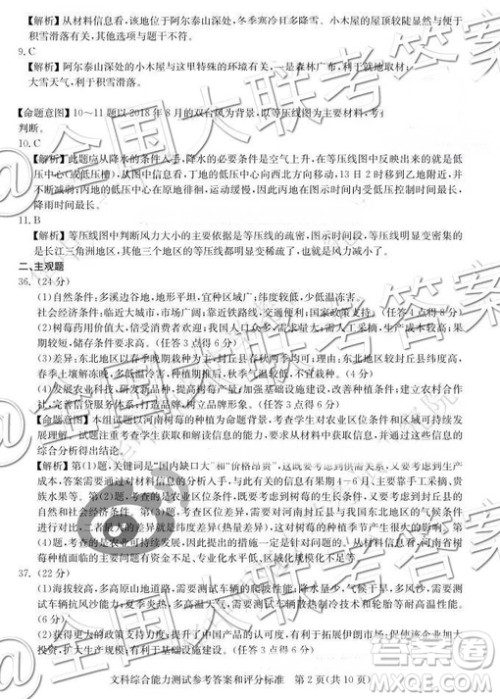 【解析】从材料信息看,该地位于阿尔泰山深处,冬季寒冷且多降雪。小木屋的屋顶较陡,有利于
积雪滑落有关,其他选项与题干不符。
9. C
【解析】阿尔泰山深处的小木屋与这里的特殊的环境有关,一是森林广布,利于就地取材;
大雪天气,利于积雪滑落。
【命题意图】10～11题以2018年8月的双台风为背景,以等压线图为主要材料,考
判断。
10. C
【解析】此题应从降水的条件入手,降水的必要条件是空气上升,在等压线图中的表现就是低
压中心(或低压槽),从图信息看,丁地的低压中心向西北方向移动,13日2时移到乙地附近,并
不断减弱。丙地的低压中心在原地徘徊,运动缓慢,因此丙地有时间内受低压控制时间最长,
降雨时间最长。
11. B
【解析】等压线图中判断风力大小的主要依据是等压线的疏密,图示信息等压线明显密集的
是长江三角洲地区,其他地区的等压线都明显变稀疏了,也就是风力减小了。
二、主观题
36. (24分)
(1)自然条件:多溪边谷地,地形平坦,宜机械化;纬度较低,少低温灾害;
社会经济条件:临近大城市,市场广阔;靠近铁路线,交通便利;国家政策支持。(任答4点得8分)
(2)树莓药用价值大,倍受欢迎,国内缺口大;人们的温饱问题已解决,人们自我保健意识提高;果
期较短,储存条件要求高。(任答2点得4分)
(3)差异:东北地区以春季成熟栽种为主,封丘县春秋两季均可;原因:东北地区较封丘县纬度高,
春季土壤解冻晚,多低温冻害;秋季降温早,秋季气温较低,不利于栽种。(6分)
(4)发展农业科技,研发新品种,提高产品质量;加强基础设施建设,改善种植条件;建立农村合作
社,完善信贷服务体系;延长产业链,树立品牌形象。(任答3点得6分)
【命题意图】本组试题以河南树莓的种植为命题背景,考查学生对农业区位条件和区域可持续发
展理解。试题注重考查学生获取和解读信息的能力,要求从材料中获取信息,并进行有关信息的
综合分析得出结论。
【解析】第(1)题,关键词是“国内缺口大”和“价格昂贵”,这既要考虑到供需关系,又要考虑到生产
成本,答案需要通过对材料信息的分析人手,与此有关的信息有果期4～6月,主要靠手工采摘,贵
族水果等。第(2)题,考查的是农业区位条件和区域差异,既要考虑到树莓的生长习性,
有利的自然条件,又要考虑到种植的社会经济条件。第(3)题,需要考虑到两地的区位条件
进行对比,主要是纬度差异(热量差异)对春季和秋季栽种的影响。第(4)题,从材料看,河南省树
莓种植面临的主要问题有资金不足、专业化水平低、基础设施薄弱、扩种困难等。
37. (22分)
(1)海拔较高,多高原山地道路,需要测试车辆的爬坡能力;降水少量少,气候干旱,多风沙,需要测
试车辆抗风沙能力;夏季炎热,多高温天气,需要测试发动机、轮胎等耐高温性能。
(6分)
(2)获得更大的市场空间,提高产品在国外市场的知名度;可依据测试信息改进性能,提高质量,
文科综合能力测试参考答案和评分标准 第2页(共10页)
@全国大联考答案